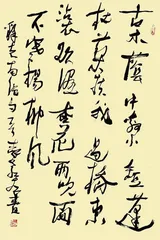 古木蔭中繫短蓬
杖藜扶我過橋東
沾衣欲濕杏花雨吹面
不寒楊柳風